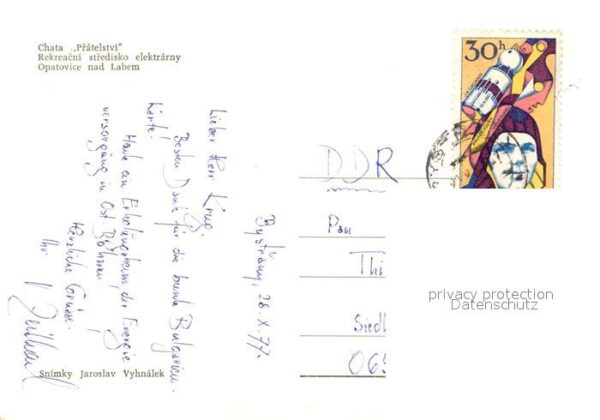 Chata „Přátelství"
Rekreační středisko elektrárny
Opatovice nad Labem
30h
Lieber Herr Krug,
Besten Dank für die bunte
Karte!
Habe ein Erholungsheim der Energie
versorgung in Ost Böhmen!
Herzliche Grüsse!
Ihr
Bystřany, 26.X.77.
DDR
Pan
Thi
Siedl
065
privacy protection
Datenschutz
Snímky Jaroslav Vyhnálek